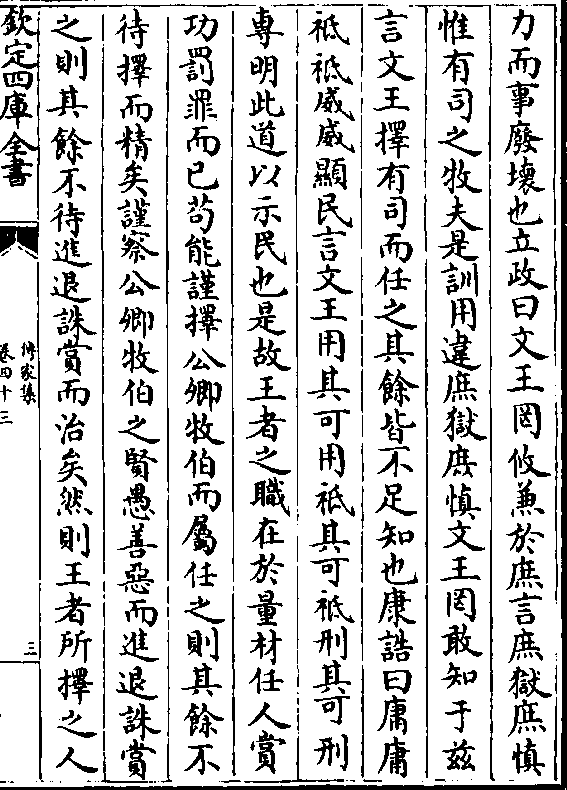 力而事廢壞也立政曰文王罔攸兼於庶言庶獄庶慎
惟有司之牧夫是訓用違庶獄庶慎文王罔敢知于兹
言文王擇有司而任之其餘皆不足知也康誥曰庸庸
祗祗威威顯民言文王用其可用祗其可祗刑其可刑
專明此道以示民也是故王者之職在於量材任人賞
功罰罪而已苟能謹擇公卿牧伯而屬任之則其餘不
待擇而精矣謹察公卿牧伯之賢愚善惡而進退誅賞
之則其餘不待進退誅賞而治矣然則王者所擇之人
欽定四庫全書
傳家集
卷四十三
三